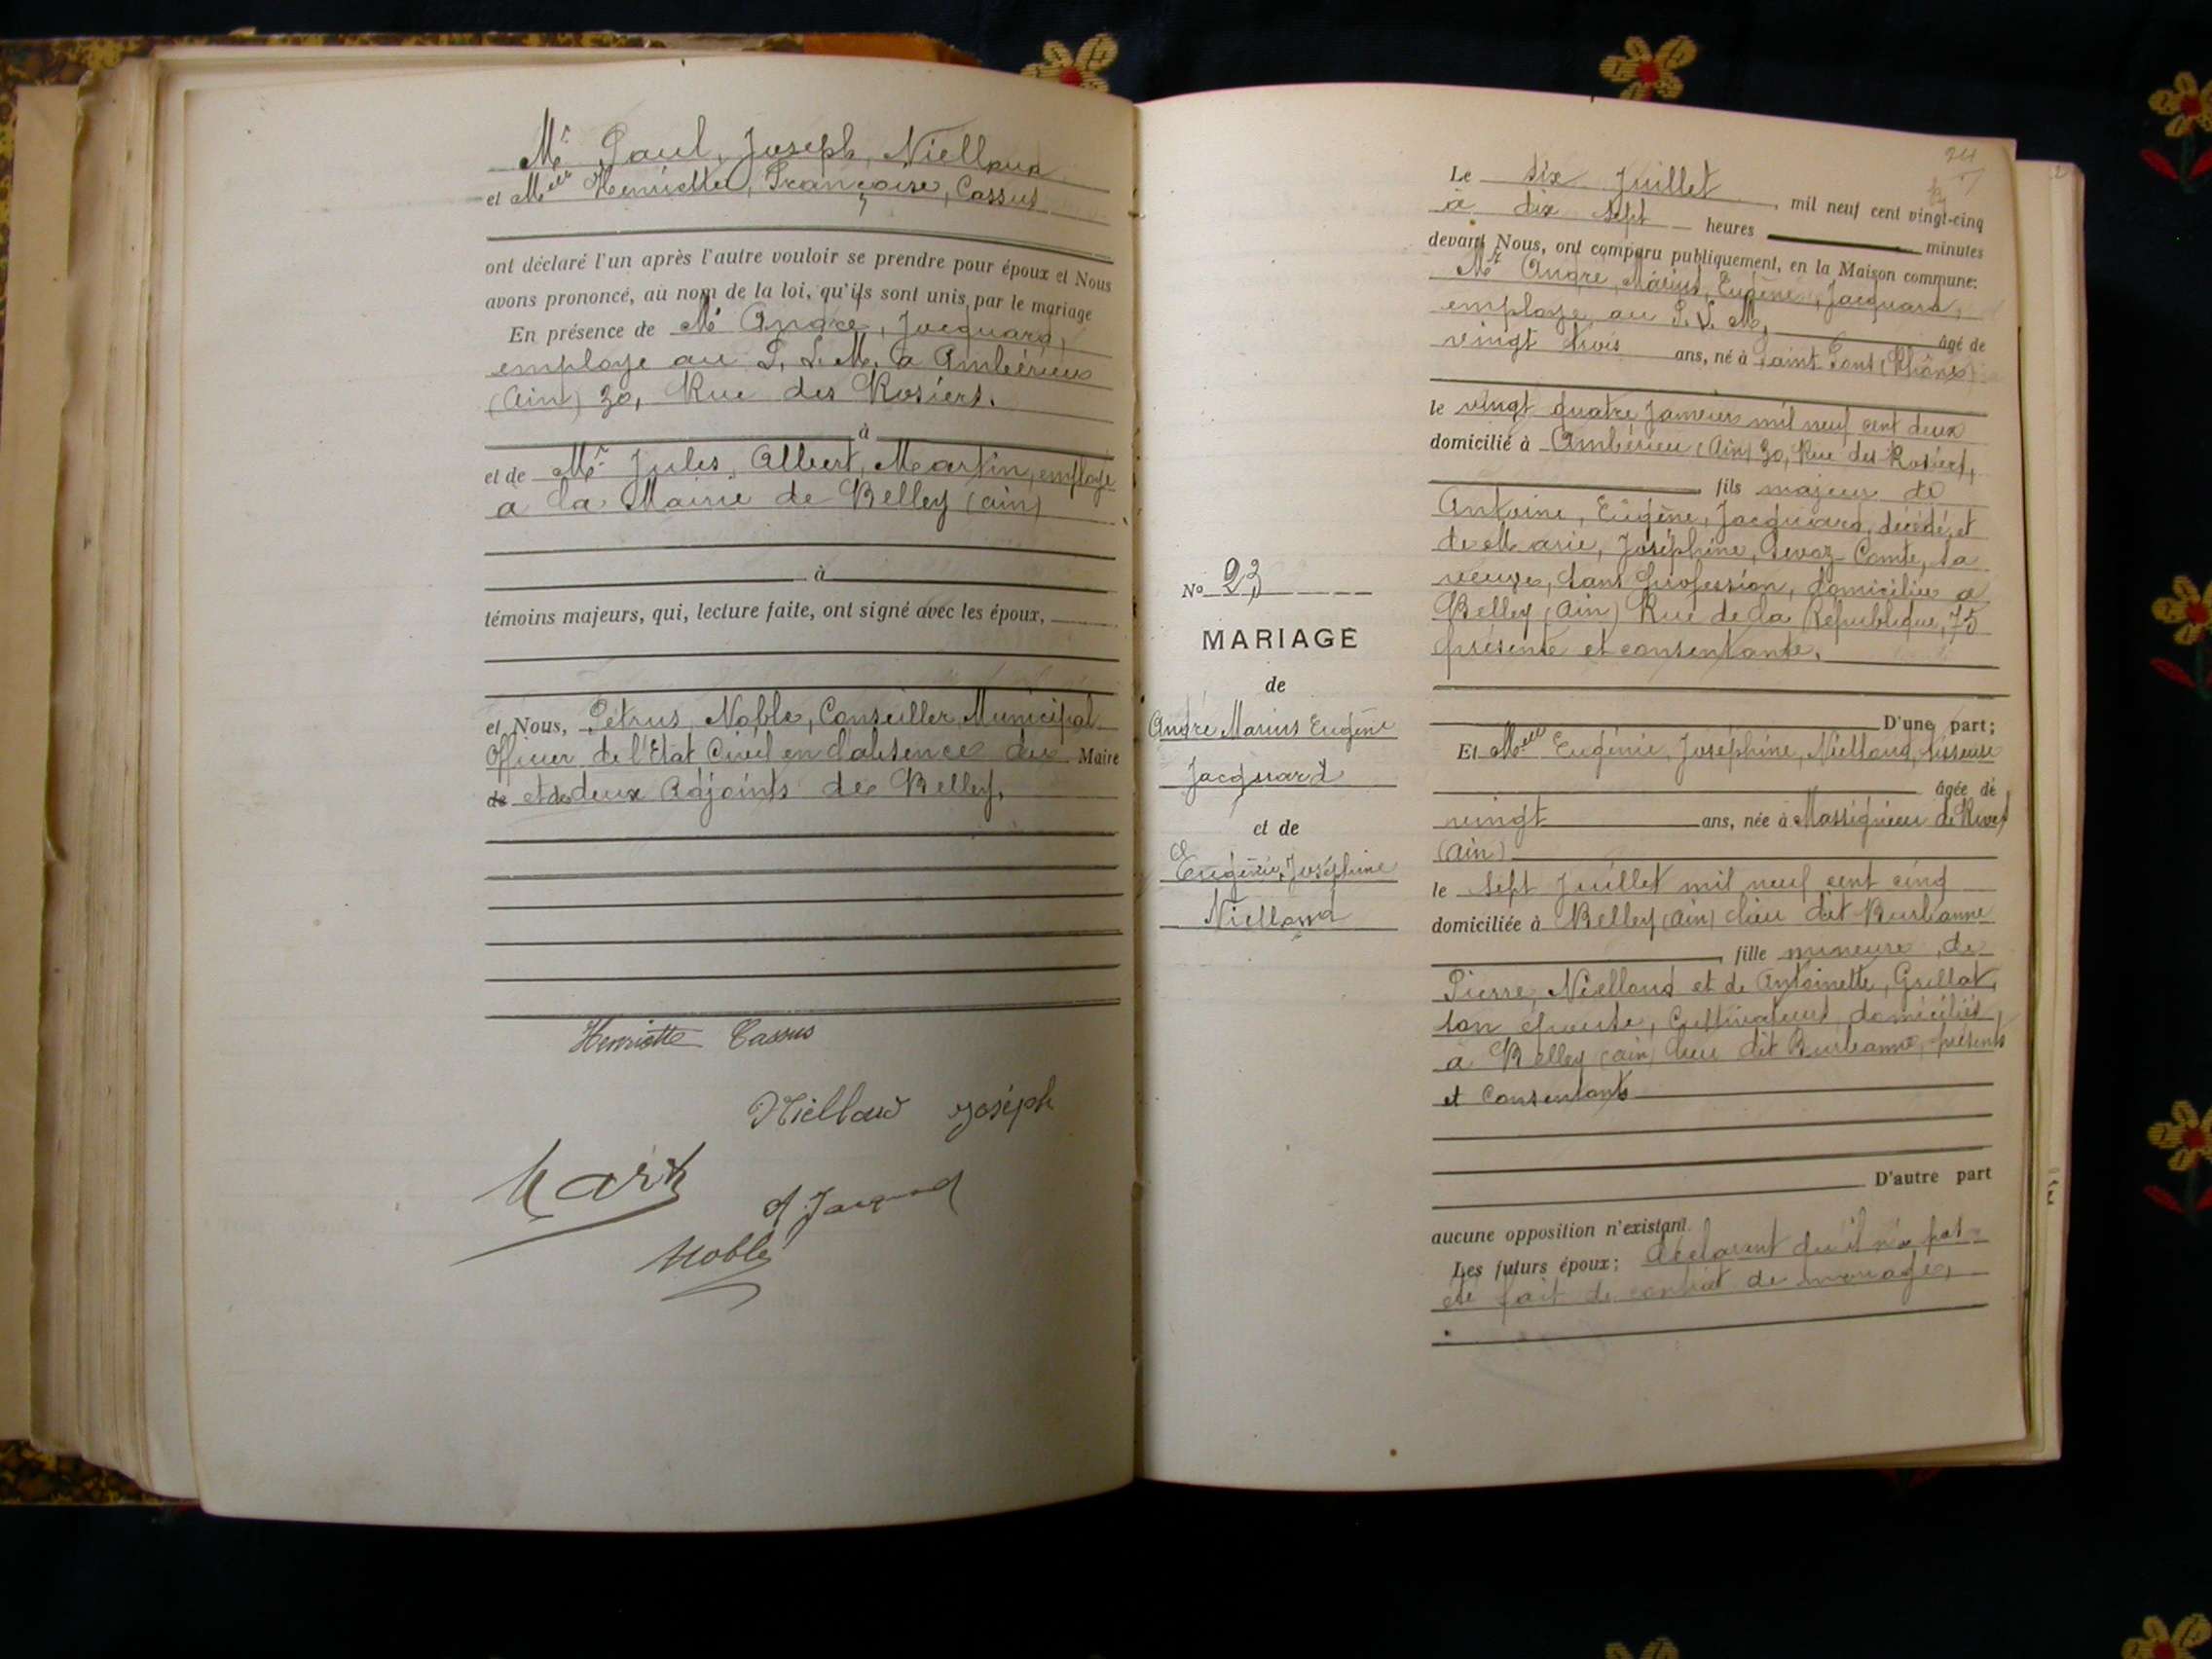 Mr Paul, Joseph, Nielloud
et Melle Henriette, Françoise, Cassus
ont déclaré l'un après l'autre vouloir se prendre pour époux et Nous
avons prononcé, au nom de la loi, qu'ils sont unis par le mariage
En présence de Mr André, Jacquard,
employé au P. L. M. à Ambérieu
(Ain) 30, Rue des Rosiers.
à
et de Mr Jules, Albert, Martin, employé
à la Mairie de Belley (ain)
à
témoins majeurs, qui, lecture faite, ont signé avec les époux,
et Nous, Petrus, Noble, Conseiller Municipal
Officier de l'Etat Civil en l'absence du Maire
de et des deux Adjoints de Belley,
Henriette Cassus
Niellaud Joseph
A Jacquard
Noble
24
Le six Juillet mil neuf cent vingt-cinq
à dix sept heures minutes
devant Nous, ont comparu publiquement, en la Maison commune:
Mr André, Marius, Eugène, Jacquard,
employé au P. L. M, âgé de
vingt trois ans, né à Saint Fons (Rhône)
le vingt quatre Janvier mil neuf cent deux
domicilié à Ambérieu (Ain) 30, Rue des Rosiers,
fils majeur de
Antoine, Eugène, Jacquard, décédé, et
de Marie, Joséphine, Comte, sa
veuve, sans profession, domiciliée à
Belley (Ain) Rue de la République, 75
présente et consentante,
D'une part;
Et Melle Eugénie, Joséphine, Nielloud, tisseuse
âgée de
vingt ans, née à Massignieu de Rives
(Ain)
le sept Juillet mil neuf cent cinq
domiciliée à Belley (Ain) lieu dit
fille mineure de
Pierre, Nielloud et de Antoinette, Grillat,
son épouse, Cultivateurs, domiciliés,
à Belley (ain) lieu dit présents
et Consentants
D'autre part
aucune opposition n'existant.
Les futurs époux; déclarent qu'il n'a pas
été fait de contrat de mariage,
No 23
MARIAGE
de
André Marius Eugène
Jacquard
et de
Eugénie, Joséphine
Nielloud